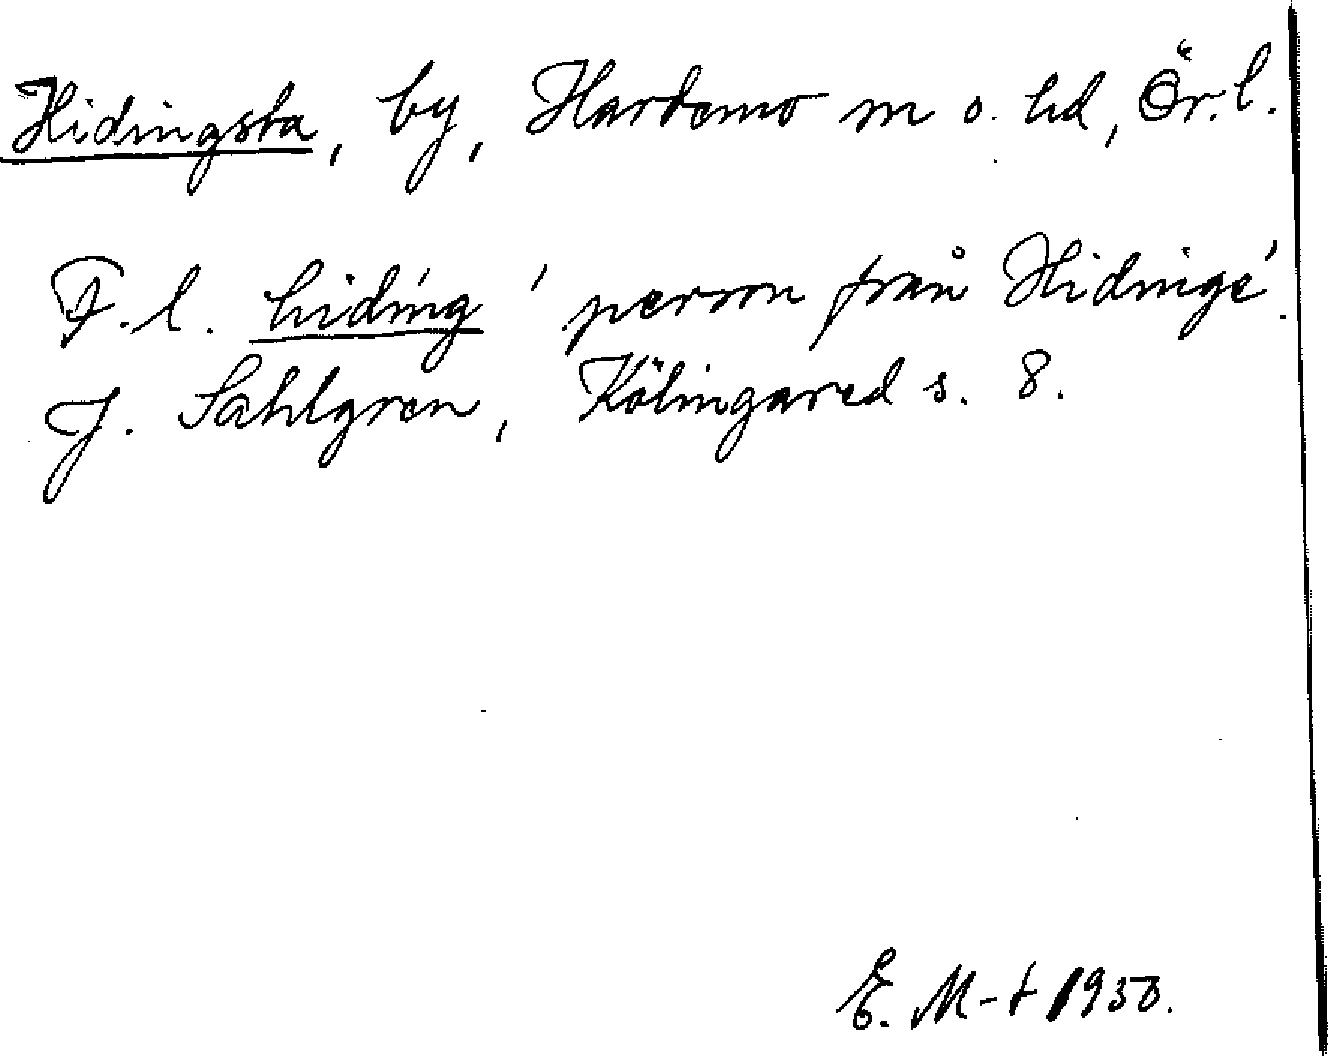 Hidingsta, by, Hardemo sn o. hd, Ör. l.
F. l. hiding 'person från Hidinge'.
J. Sahlgren, Kölingared s. 8.
E. M-t